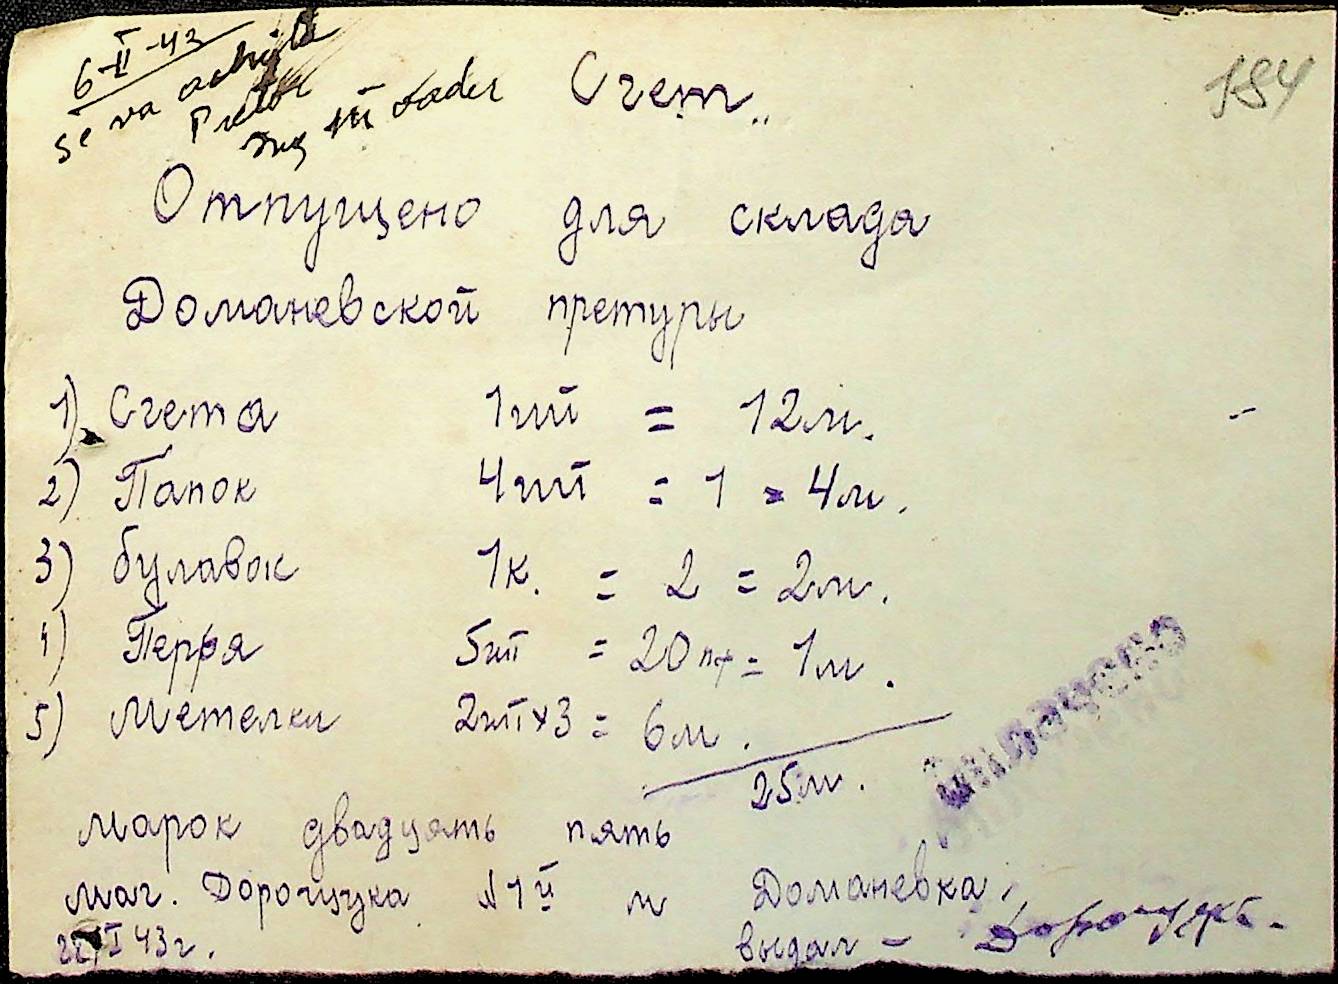 6-II-43
se va achita
Pretor
Счет..
184
Отпущено для склада
Доманевской претуры
1) Счета 1шт = 12м.
2) Папок 4шт = 1 = 4м.
3) булавок 1к. = 2 = 2м.
4) Перья 5шт = 20пф = 1м.
5) Метелки 2шт х 3 = 6м.
25м.
Оплачено
марок двадцать пять
маг. Дорощука №1й м Доманевка,
I 43г. выдал –